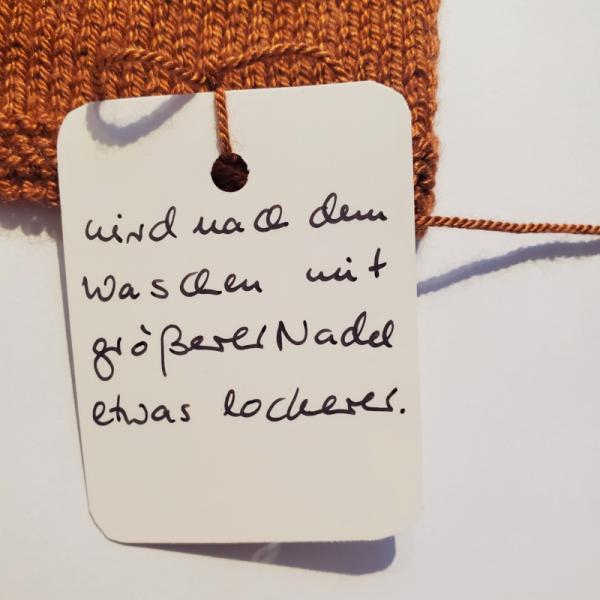 wird nach dem
waschen mit
größerer Nadel
etwas lockerer.